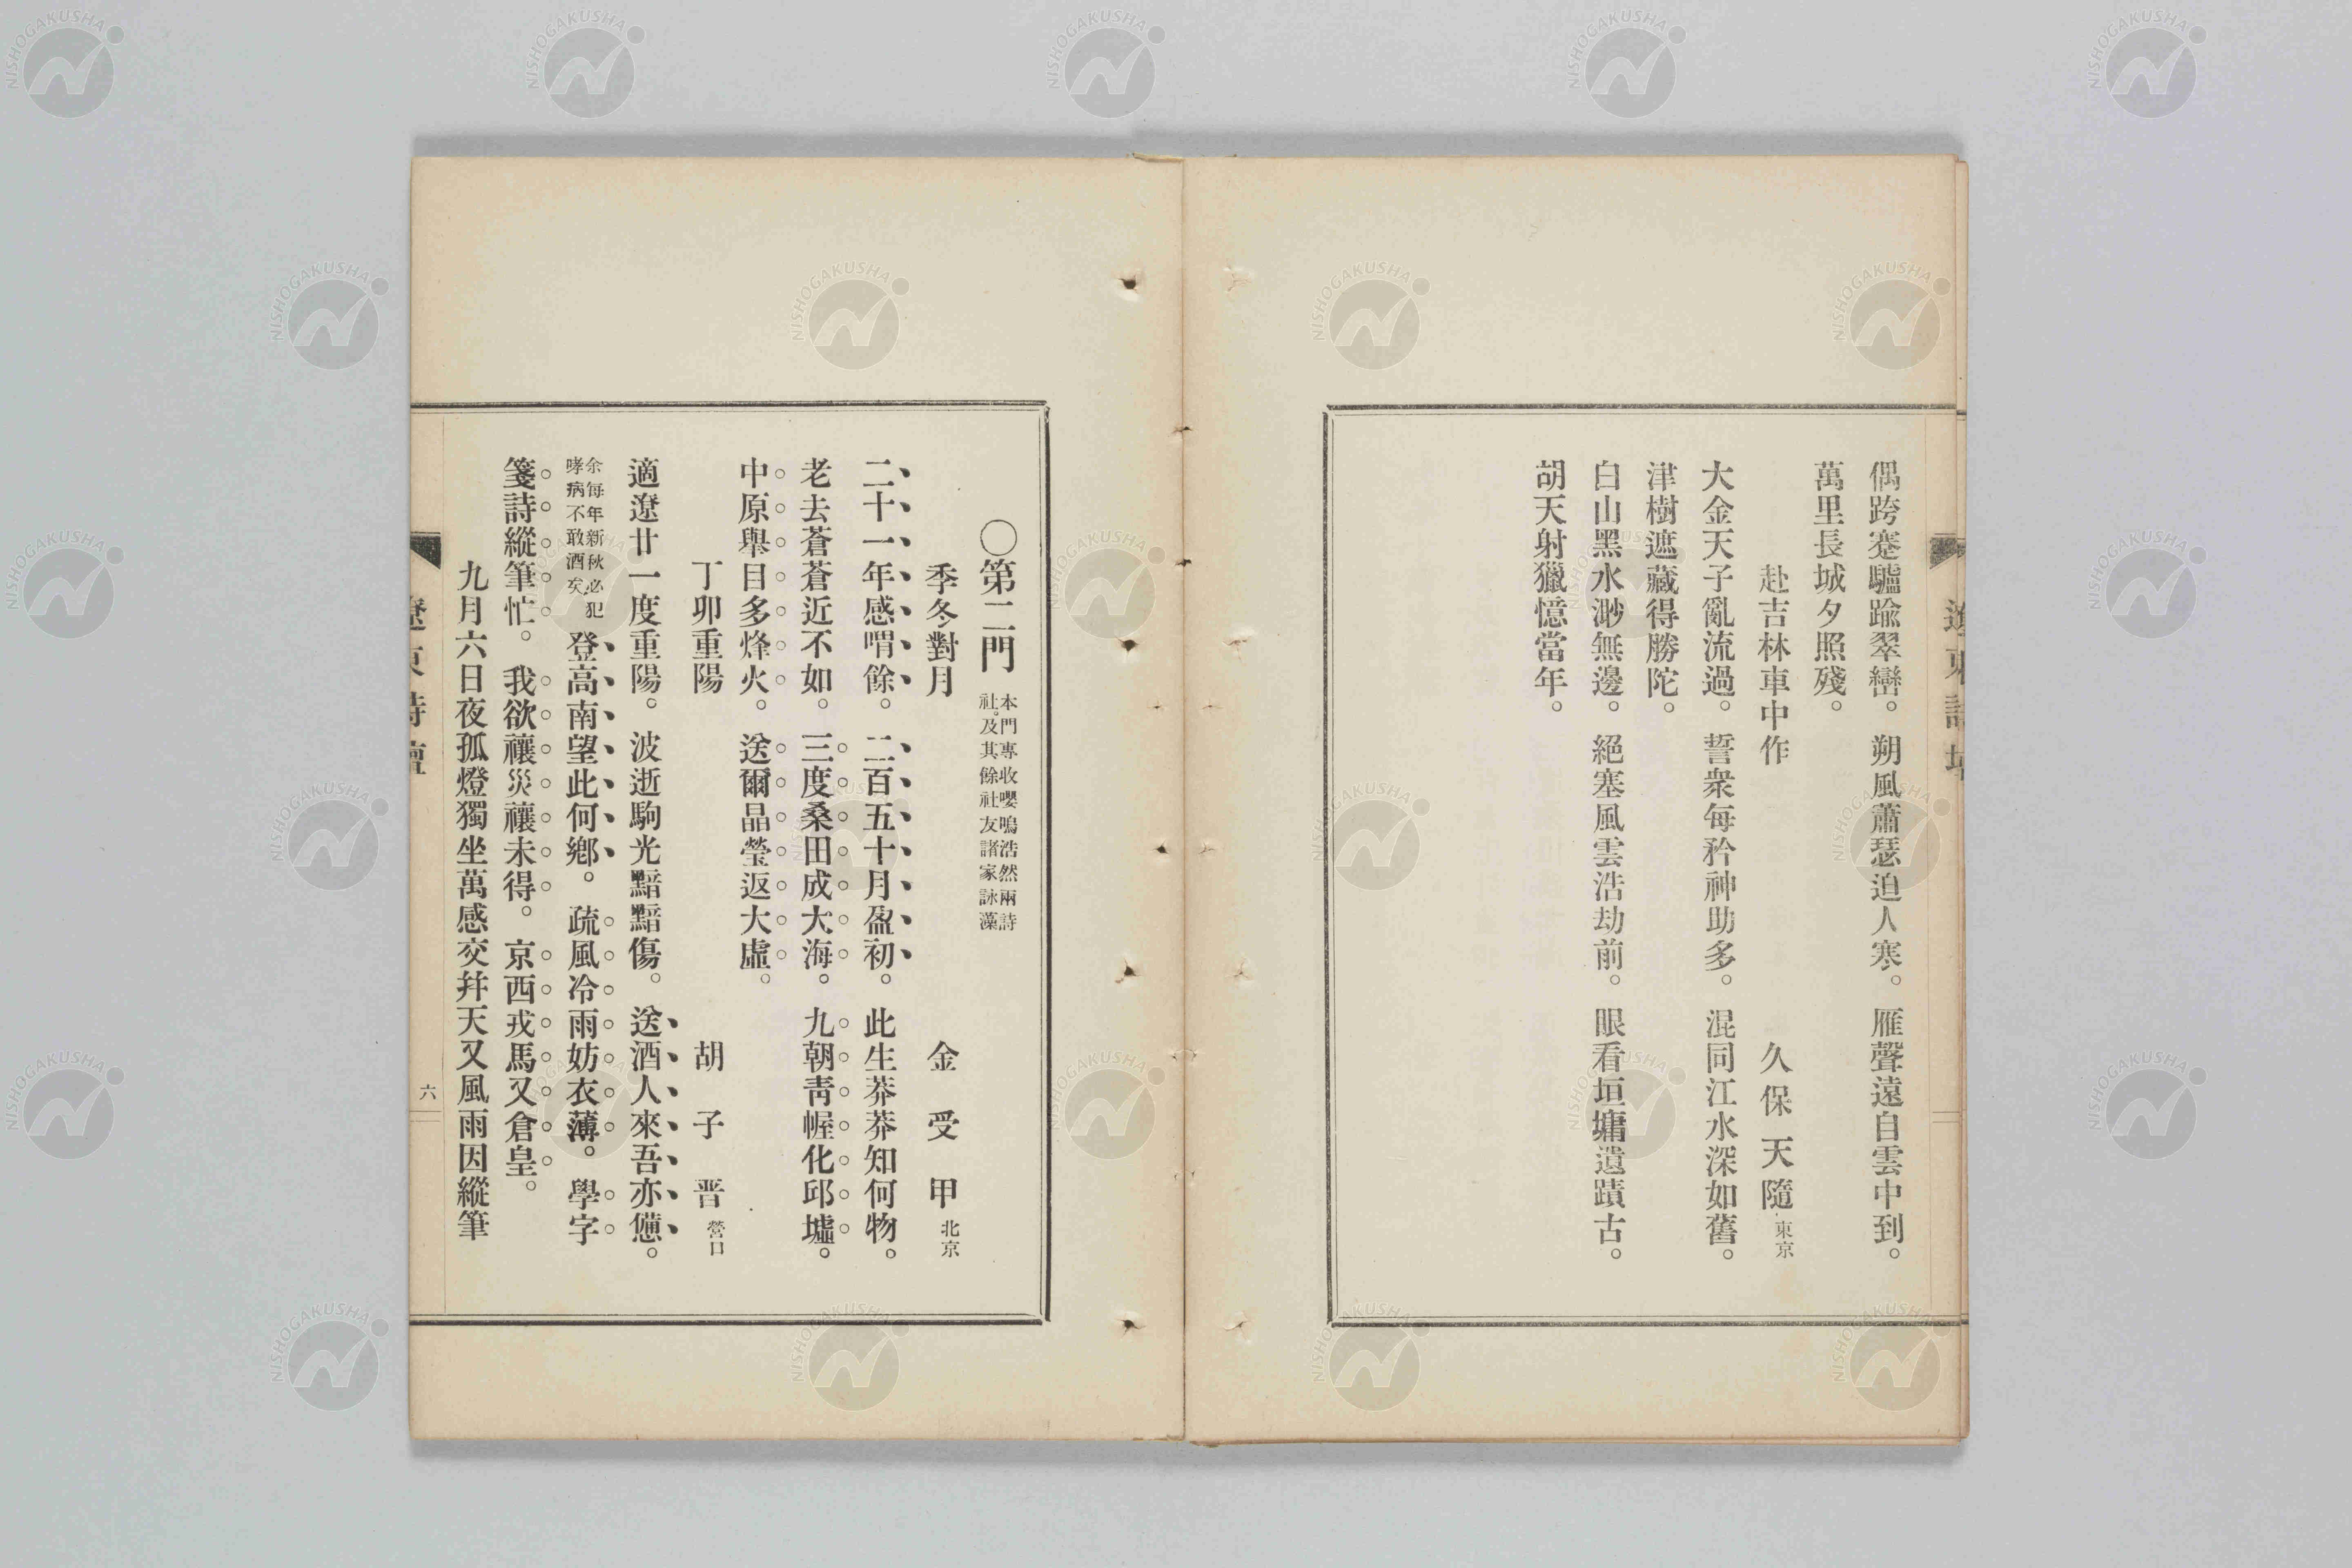 偶跨蹇驢踰翠巒。朔風蕭瑟迫人寒。雁聲遠自雲中到。
萬里長城夕照殘。
赴吉林車中作　久保天隨 東京
大金天子亂流過。誓衆每矜神助多。混同江水深如舊。
津樹遮藏得勝陀。
白山黑水渺無邊。絕塞風雲浩劫前。眼看垣墉遺蹟古。
胡天射獵憶當年。
〇第二門 本門專收嚶鳴浩然兩詩
社。及其餘社友諸家詠藻
季冬對月　金受甲 北京
二十一年感喟餘。二百五十月盈初。此生莽莽知何物。
老去蒼蒼近不如。三度桑田成大海。九朝靑幄化邱墟。
中原舉目多烽火。送爾晶瑩返大虛。
丁卯重陽　胡子晋 營口
適遼廿一度重陽。波逝駒光黯黯傷。送酒人來吾亦憊。
余每年新秋必犯
哮病不敢酒矣 登高南望此何鄉。疏風冷雨妨衣薄。學字
箋詩縱筆忙。我欲禳災禳未得。京西戎馬又倉皇。
九月六日夜孤燈獨坐萬感交幷天又風雨因縱筆
六
NISHOGAKUSHA